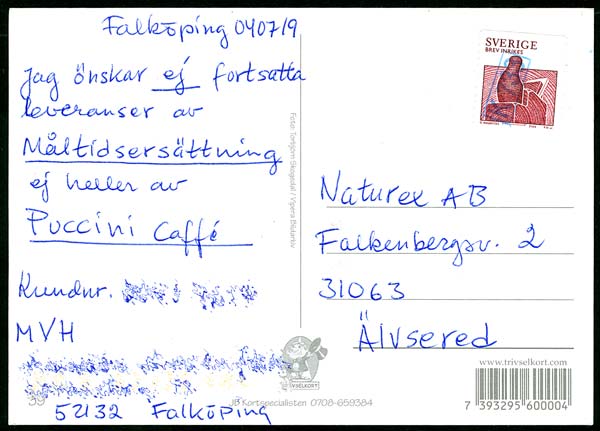 Falköping 040719
Jag önskar ej fortsatta
leveranser av
Måltidsersättning
ej heller av
Puccini Caffé
Kundnr.
MVH
52132 Falköping
SVERIGE
BREV INRIKES
Naturex AB
Falkenbergsv. 2
31063
Älvsered
www.trivselkort.com
7 393295 600004
39
TRIVSELKORT
JB Kortspecialisten 0708-659384